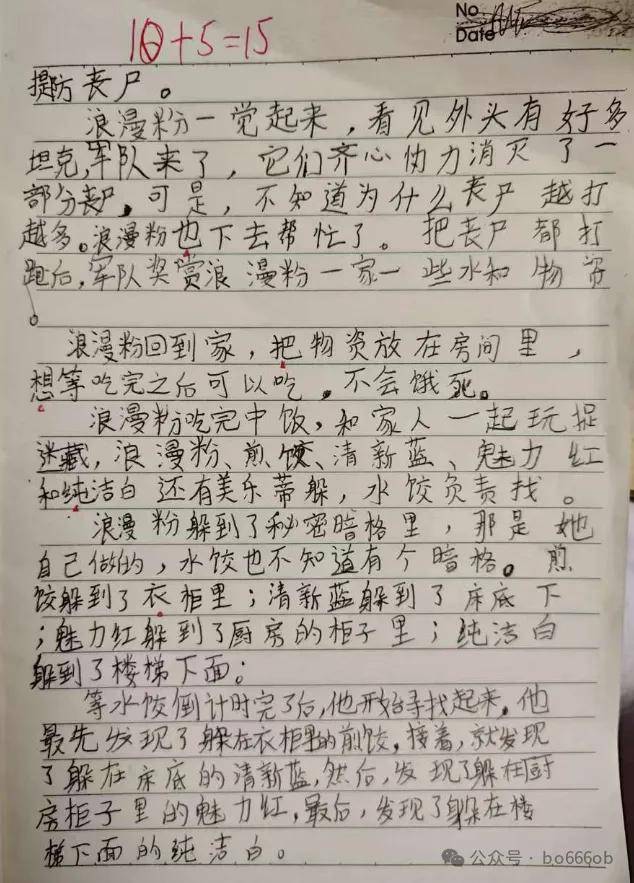 10+5=15
No
Date
提防丧尸。
浪漫粉一觉起来，看见外头有好多
坦克，军队来了，它们齐心协力消灭了一
部分丧尸，可是，不知道为什么丧尸越打
越多。浪漫粉也下去帮忙了。把丧尸都打
跑后，军队奖赏浪漫粉一家一些水和物资
。
浪漫粉回到家，把物资放在房间里，
想等吃完之后可以吃，不会饿死。
浪漫粉吃完中饭，和家人一起玩捉
迷藏，浪漫粉、煎饺、清新蓝、魅力红
和纯洁白还有美乐蒂躲，水饺负责找。
浪漫粉躲到了秘密暗格里，那是她
自己做的，水饺也不知道有个暗格。煎
饺躲到了衣柜里；清新蓝躲到了床底下
；魅力红躲到了厨房的柜子里；纯洁白
躲到了楼梯下面；
等水饺倒计时完了后，他开始寻找起来，他
最先发现了躲在衣柜里的煎饺，接着，就发现
了躲在床底的清新蓝，然后，发现了躲在厨
房柜子里的魅力红，最后，发现了躲在楼
梯下面的纯洁白。
公众号·bo666ob